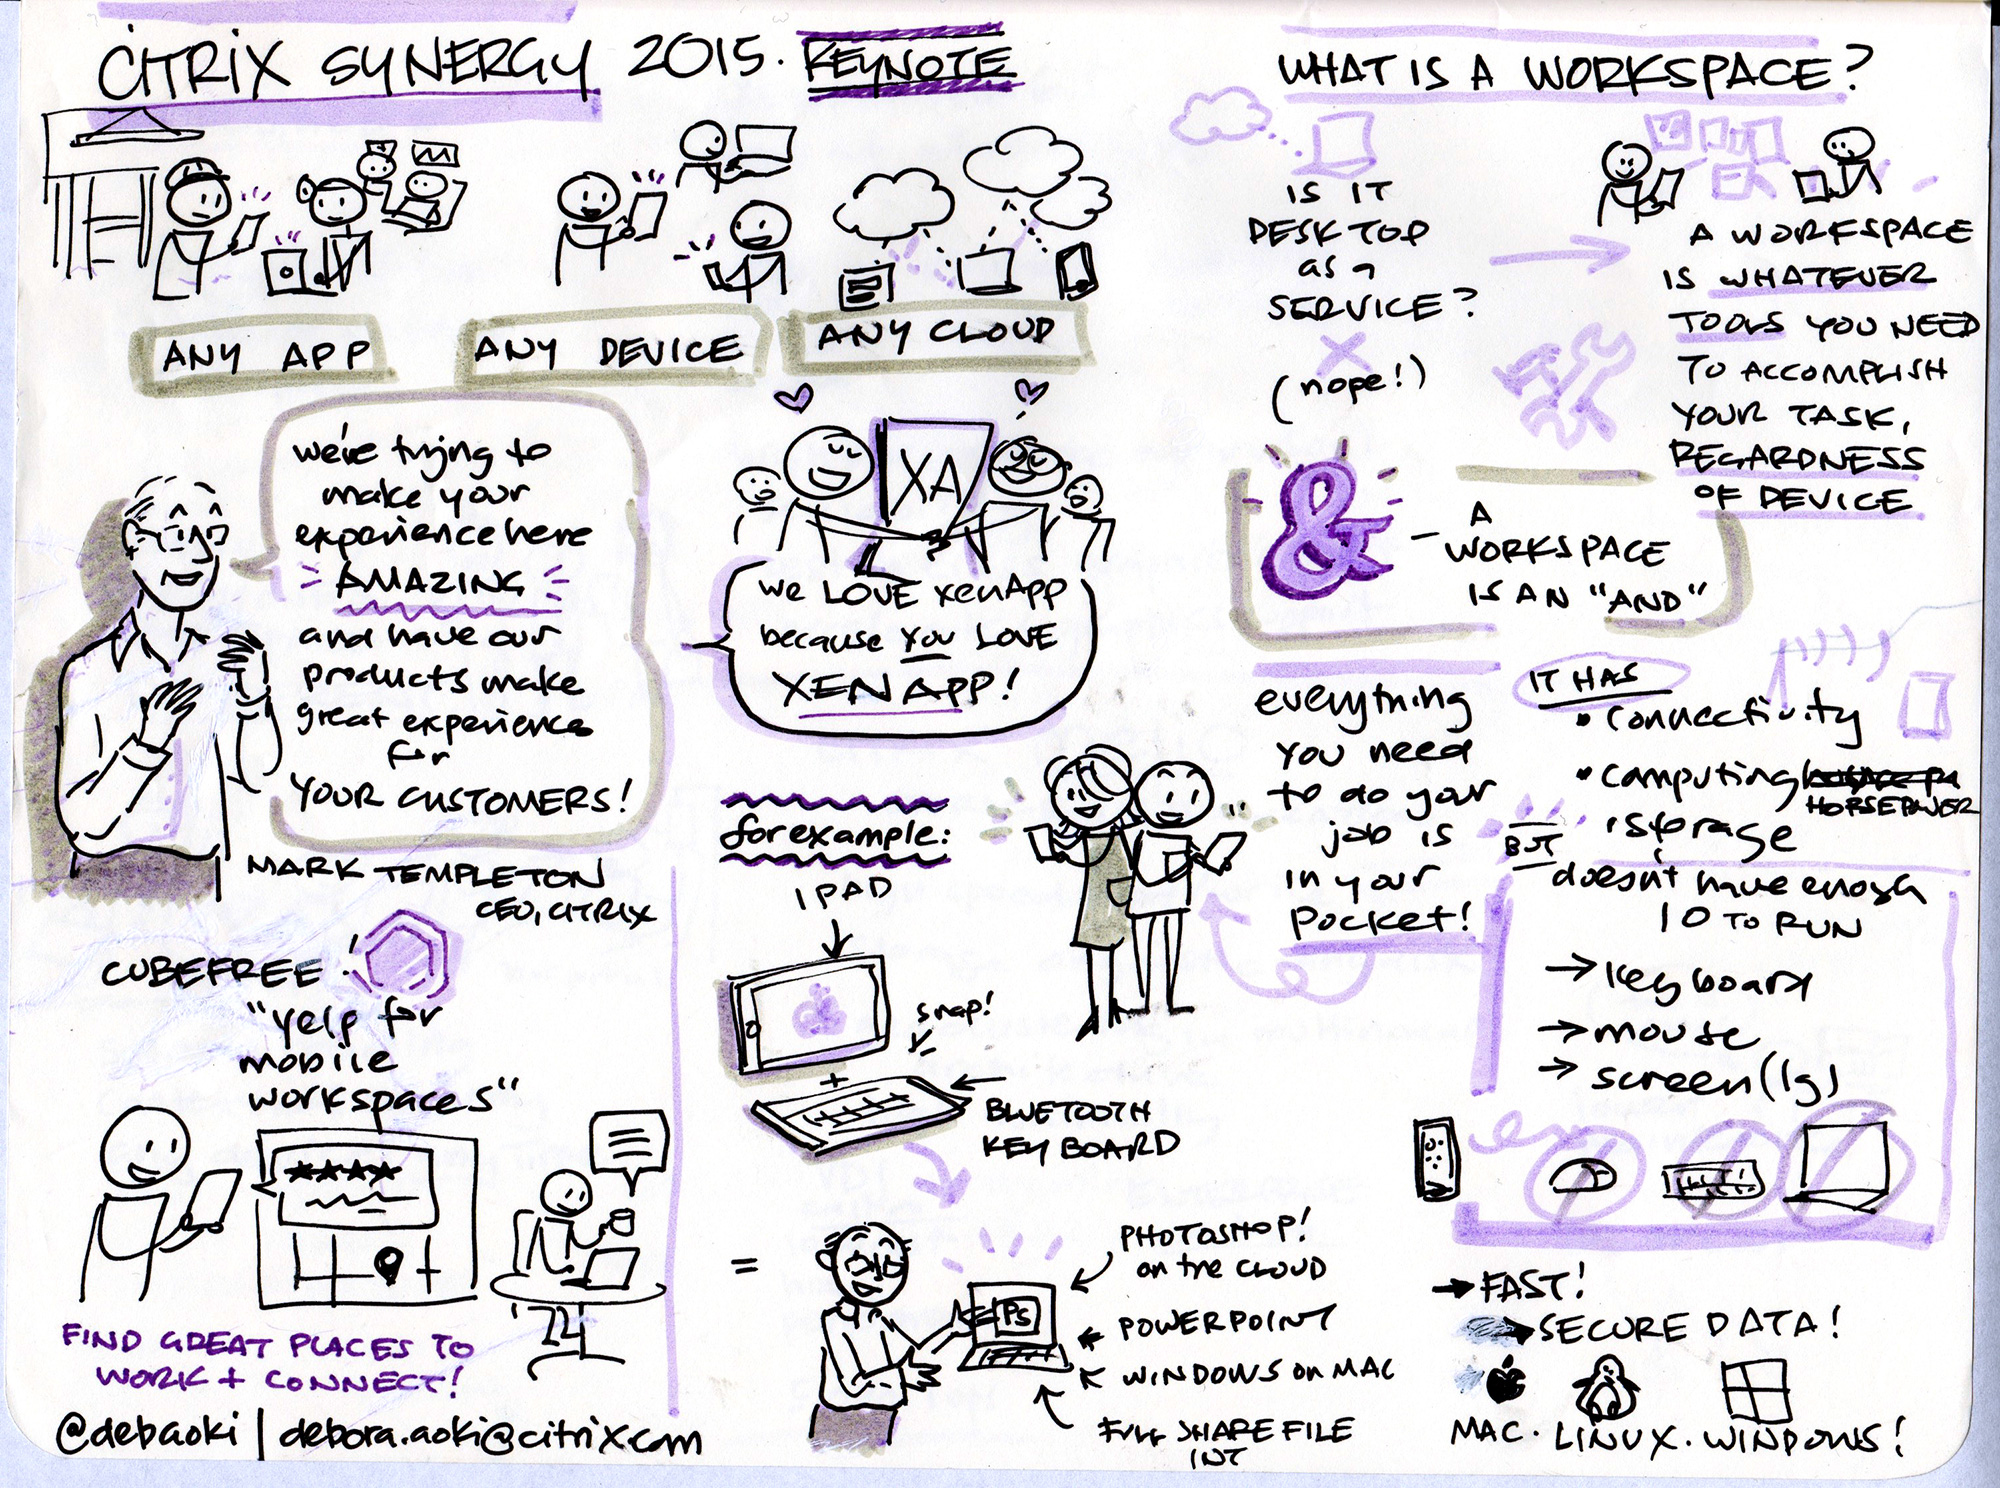 CITRIX SYNERGY 2015. KEYNOTE
ANY APP
ANY DEVICE
ANY CLOUD
we're trying to
make your
experience here
AMAZING
and have our
products make
great experiences
for
YOUR CUSTOMERS!
MARK TEMPLETON
CEO, CITRIX
XA
we LOVE xenApp
because you LOVE
XENAPP!
CUBEFREE:
"yelp for
mobile
workspaces"
FIND GREAT PLACES TO
WORK + CONNECT!
@debaoki | debora.aoki@citrix.com
for example:
IPAD
snap!
+
BLUETOOTH
KEYBOARD
=
Ps
PHOTOSHOP!
on the CLOUD
POWERPOINT
WINDOWS on MAC
FULL SHARE FILE
INT
WHAT IS A WORKSPACE?
IS IT
DESKTOP
as a
SERVICE?
(nope!)
A WORKSPACE
IS WHATEVER
TOOLS YOU NEED
TO ACCOMPLISH
YOUR TASK,
REGARDNESS
OF DEVICE
&
- A
WORKSPACE
IS AN "AND"
everything
you need
to do your
job is
in your
pocket!
IT HAS
• connectivity
• computing
HORSEPOWER
• storage
BUT
doesn't have enough
IO TO RUN
→ keyboard
→ mouse
→ screen (lg)
→ FAST!
→ SECURE DATA!
MAC. LINUX. WINDOWS!